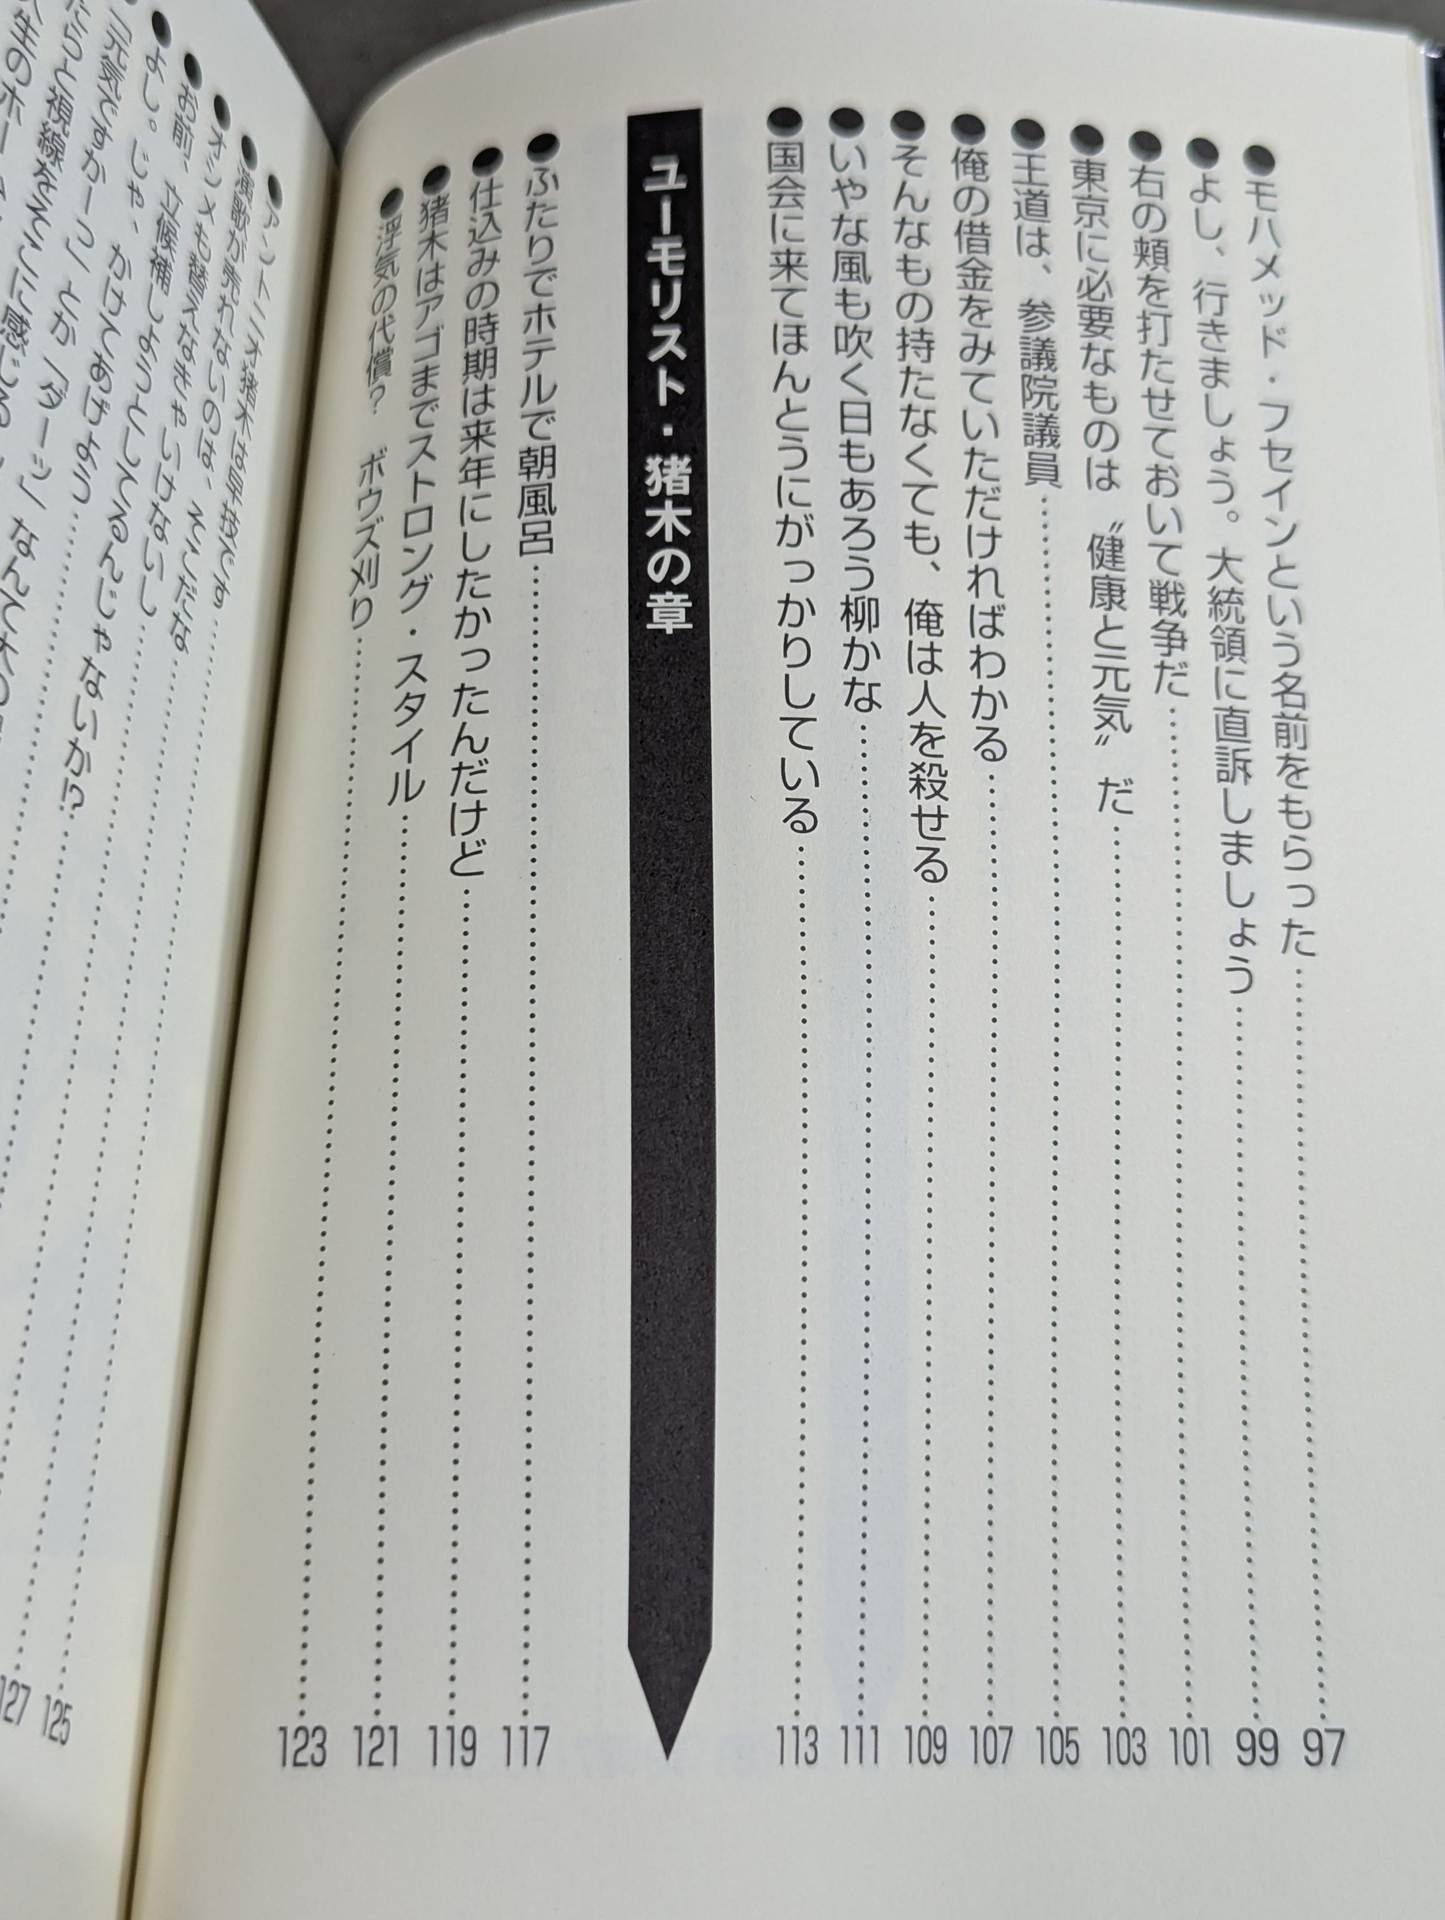 ●モハメッド・フセインという名前をもらった……97
●よし、行きましょう。大統領に直訴しましょう……99
●右の頬を打たせておいて戦争だ……101
●東京に必要なものは〝健康と元気〟だ……103
●王道は、参議院議員……105
●俺の借金をみていただければわかる……107
●そんなもの持たなくても、俺は人を殺せる……109
●いやな風も吹く日もあろう柳かな……111
●国会に来てほんとうにがっかりしている……113
ユーモリスト・猪木の章
●ふたりでホテルで朝風呂……117
●仕込みの時期は来年にしたかったんだけど……119
●猪木はアゴまでストロング・スタイル……121
●浮気の代償? ボウズ刈り……123
●アントニオ猪木は早技です……125
●演歌が売れないのは、そこだな……127
●オシメも替えなきゃいけないし
●お前、立候補しようとしてるんじゃないか!?
●よし。じゃ、かけてあげよう
元気ですかーっ」とか「ダーッ」なんて
たらと視線をそこに感じる
生のホー